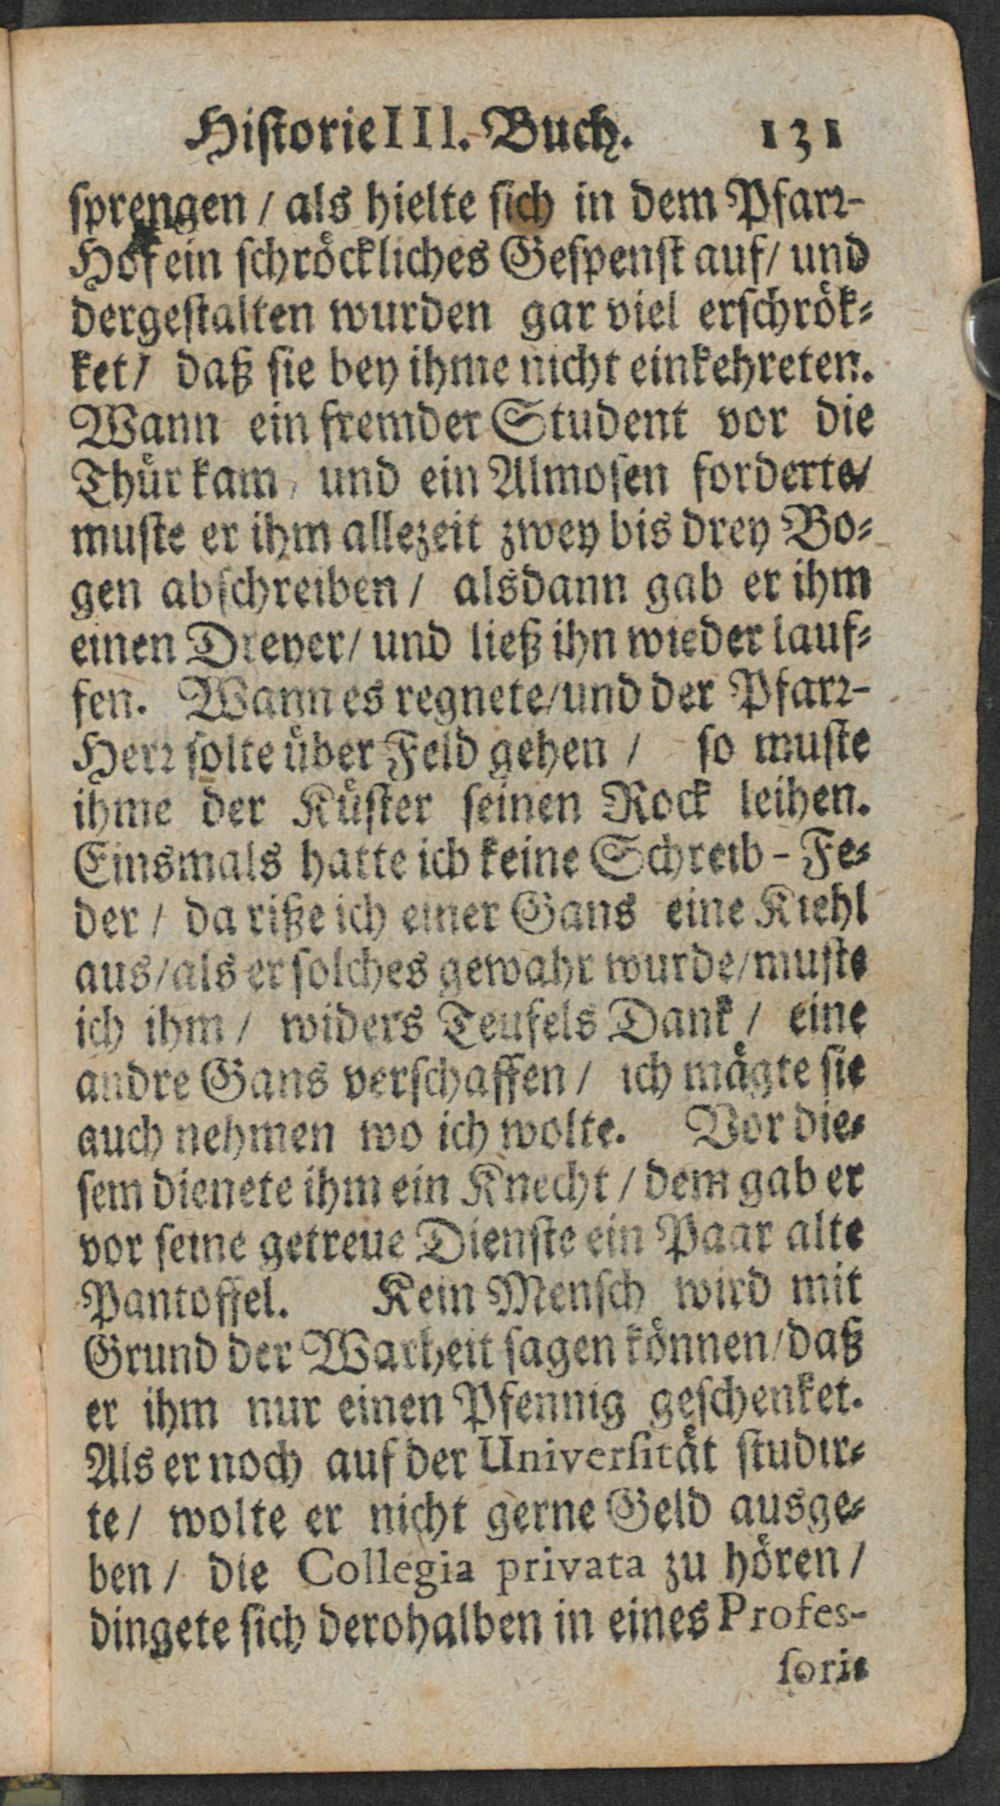 Historie III. Buch. 131
sprengen / als hielte sich in dem Pfarr-
Hof ein schröckliches Gespenst auf / und
dergestalten wurden gar viel erschrök-
ket / daß sie bey ihme nicht einkehreten.
Wann ein fremder Student vor die
Thür kam / und ein Almosen forderte /
muste er ihm allezeit zwey bis drey Bo-
gen abschreiben / alsdann gab er ihm
einen Dreyer / und ließ ihn wieder lauf-
fen. Wann es regnete / und der Pfarr-
Herr solte über Feld gehen / so muste
ihme der Küster seinen Rock leihen.
Einsmals hatte ich keine Schreib-Fe-
der / da riße ich einer Gans eine Kiehl
aus / als er solches gewahr wurde / muste
ich ihm / widers Teufels Dank / eine
andre Gans verschaffen / ich mägte sie
auch nehmen wo ich wolte. Vor die-
sem dienete ihm ein Knecht / dem gab er
vor seine getreue Dienste ein Paar alte
Pantoffel. Kein Mensch wird mit
Grund der Warheit sagen können / daß
er ihm nur einen Pfennig geschenket.
Als er noch auf der Universität studir-
te / wolte er nicht gerne Geld ausge-
ben / die Collegia privata zu hören /
dingete sich derohalben in eines Profes-
soris